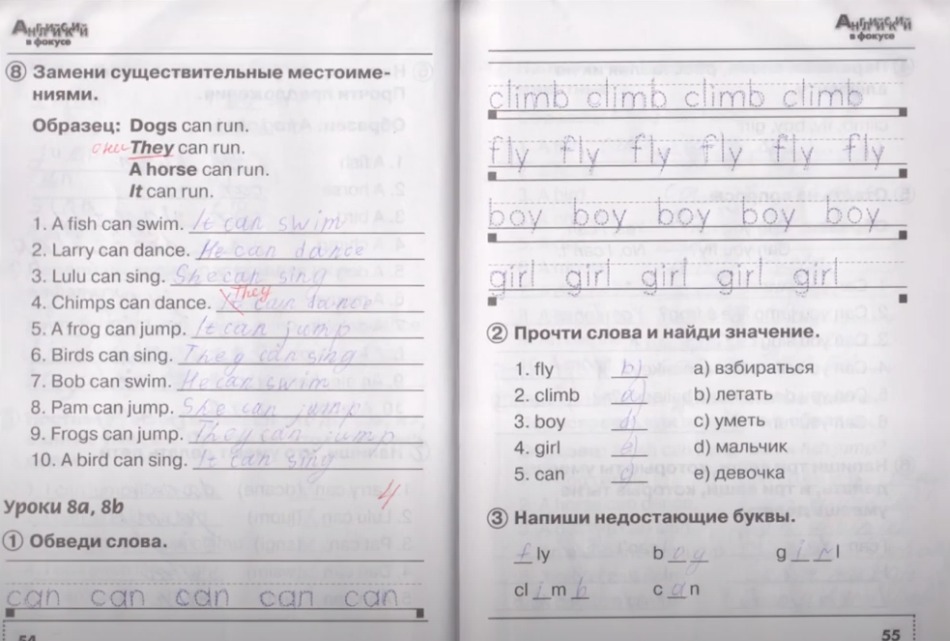 Английский
в фокусе
8 Замени существительные местоиме-
ниями.
Образец: Dogs can run.
они They can run.
A horse can run.
It can run.
1. A fish can swim. It can swim
2. Larry can dance. He can dance
3. Lulu can sing. She can sing
They
4. Chimps can dance. can dance
5. A frog can jump. It can jump
6. Birds can sing. They can sing
7. Bob can swim. He can swim
8. Pam can jump. She can jump
9. Frogs can jump. They can jump
10. A bird can sing. It can sing
4
Уроки 8a, 8b
1 Обведи слова.
can can can can can
54
Английский
в фокусе
climb climb climb climb
fly fly fly fly fly fly
boy boy boy boy boy
girl girl girl girl girl
2 Прочти слова и найди значение.
1. fly b) a) взбираться
2. climb b) летать
3. boy d) c) уметь
4. girl e) d) мальчик
5. can e) девочка
3 Напиши недостающие буквы.
fly boy girl
climb can
55